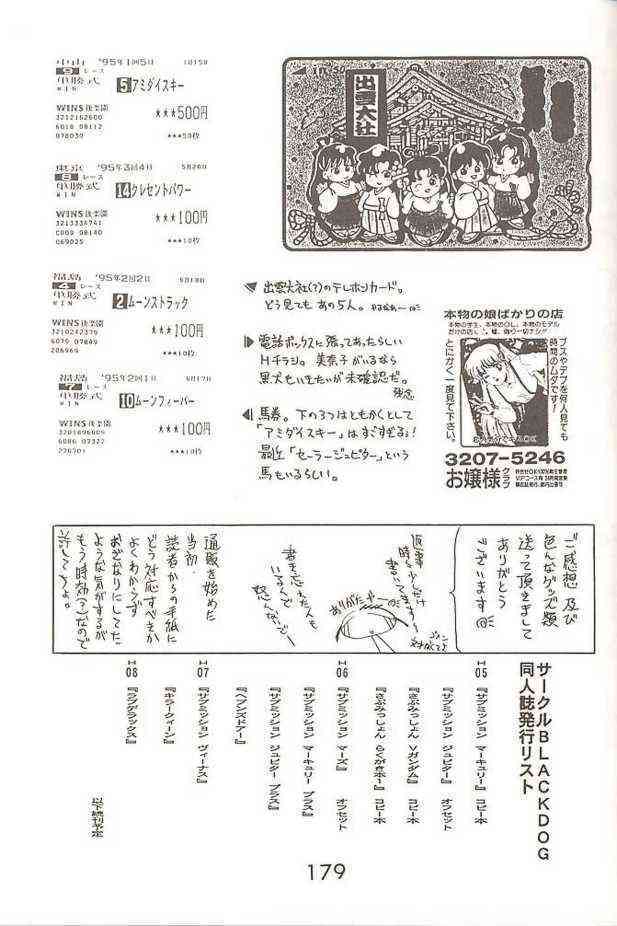 '95年1回5日
9 レース
単勝式 5 アミダイスキー
WIN
WINS後楽園 ★★★500円
3212162600
6018 08112
078030 ★★★50枚
東京 '95年3回4日 5月28日
8 レース
単勝式 14 クレセントパワー
WIN
WINS後楽園 ★★★100円
★★★10枚
福島 '95年2回2日
4 レース
単勝式 2 ムーンストラック
WIN
WINS後楽園 ★★★100円
★★★10枚
福島 '95年2回1日
7 レース
単勝式 10 ムーンフィーバー
WIN
WINS後楽園 ★★★100円
★★★10枚
出雲大社
出雲大社(?)のテレホンカード。
どう見てもあの5人。
電話ボックスに張ってあったらしい
Hチラシ。美奈子がいるなら
黒犬もいきたいが未確認だ。
残念
馬券。下の3つはともかくとして
「アミダイスキー」はすごすぎる!
最近「セーラージュピター」という
馬もいるらしい。
本物の娘ばかりの店
本物の学生、本物のOL、本物のモデル
ブスやデブを何人見ても
時間のムダです!
とにかく一度見て下さい。
3207-5246
お嬢様クラブ
ご感想及び
色んなグッズ類
送って頂きまして
ありがとう
ございます
返事
時々少しだけ
書いてますが
書き忘れた人も
いるんで
怒んないでー
ありがたや
通販を始めた
当初
読者からの手紙に
どう対応すべきか
よくわからず
おざなりにしてた
ような気がするが
もう時効(?)なので
許してちょ。
サークルBLACKDOG
同人誌発行リスト
H05 『サブミッション マーキュリー』 コピー本
『サブミッション ジュピター』 オフセット
『さぶみっしょん Vガンダム』 コピー本
『さぶみっしょん らくがきホー』 コピー本
H06 『サブミッション マーズ』 オフセット
『サブミッション マーキュリー プラス』
『サブミッション ジュピター プラス』
『ヘブンズドアー』
H07 『サブミッション ヴィーナス』
『キラークィーン』
H08 『ラブデラックス』
以下続刊予定
179